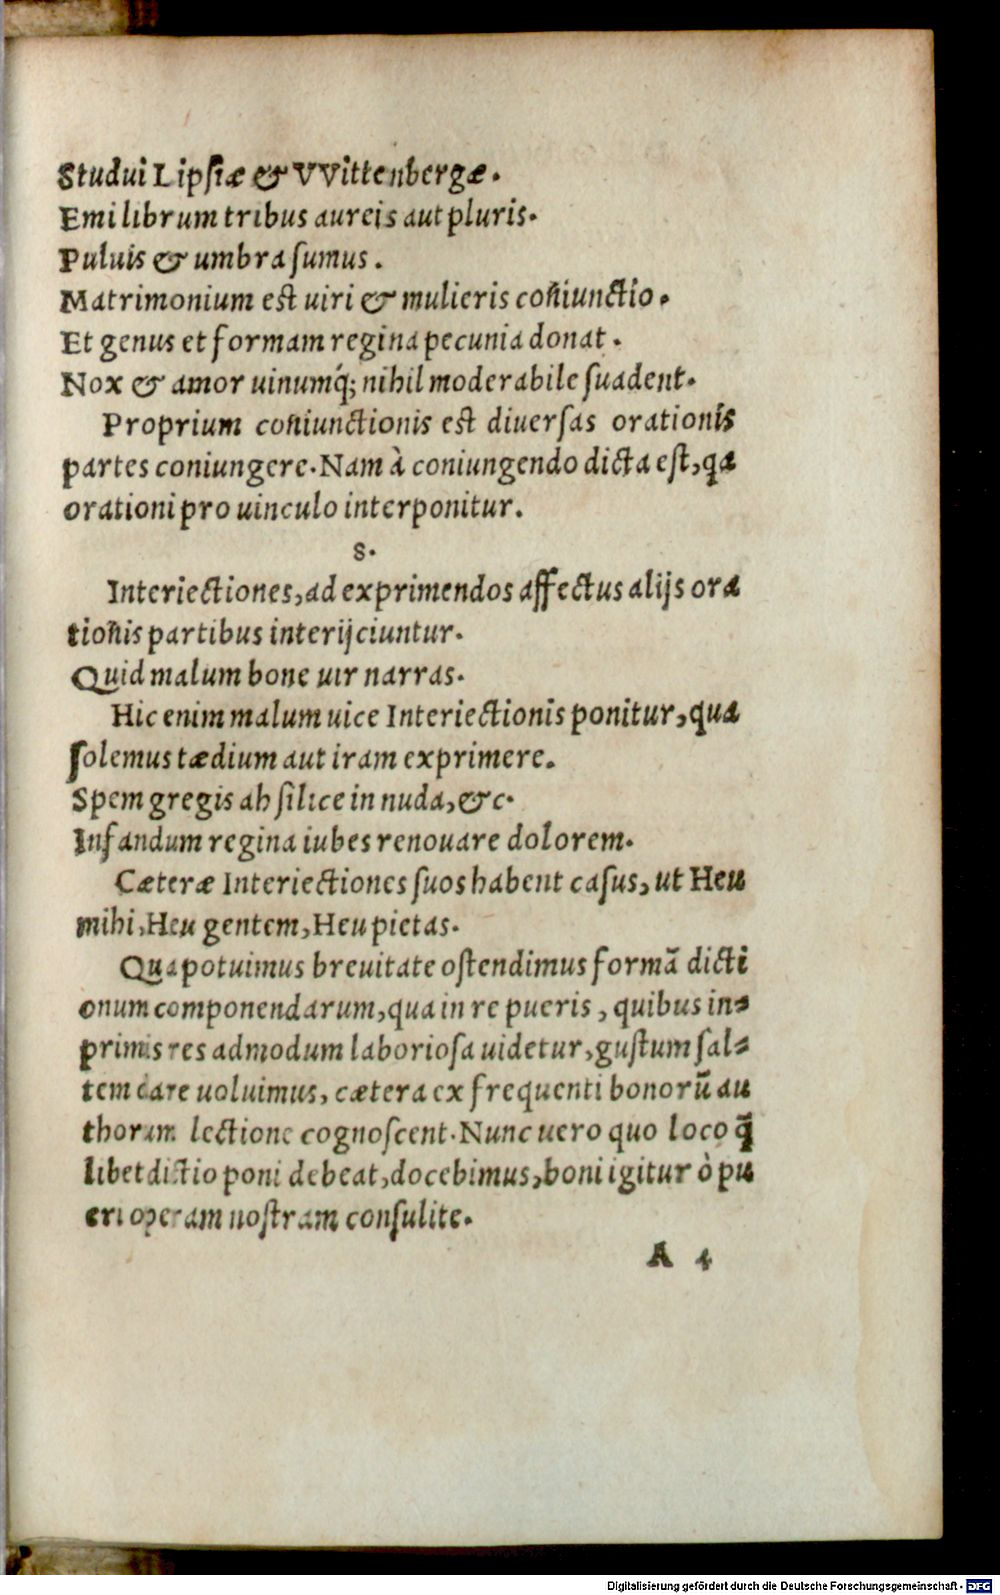 Studui Lipsiæ & VVittenbergæ.
Emi librum tribus aureis aut pluris.
Puluis & umbra sumus.
Matrimonium est uiri & mulieris coniunctio.
Et genus et formam regina pecunia donat.
Nox & amor uinumq́; nihil moderabile suadent.
Proprium coniunctionis est diuersas orationis
partes coniungere. Nam à coniungendo dicta est, qa
orationi pro uinculo interponitur.
8.
Interiectiones, ad exprimendos affectus alijs ora
tionis partibus interijciuntur.
Quid malum bone uir narras.
Hic enim malum uice Interiectionis ponitur, qua
solemus tædium aut iram exprimere.
Spem gregis ah silice in nuda, &c.
Infandum regina iubes renouare dolorem.
Cæteræ Interiectiones suos habent casus, ut Heu
mihi, Heu gentem, Heu pietas.
Qua potuimus breuitate ostendimus formā dicti
onum componendarum, qua in re pueris, quibus in-
primis res admodum laboriosa uidetur, gustum sal-
tem dare uoluimus, cætera ex frequenti bonorū au
thorum lectione cognoscent. Nunc uero quo loco q̄
libet dictio poni debeat, docebimus, boni igitur ò pu
eri operam nostram consulite.
A 4
Digitalisierung gefördert durch die Deutsche Forschungsgemeinschaft - DFG